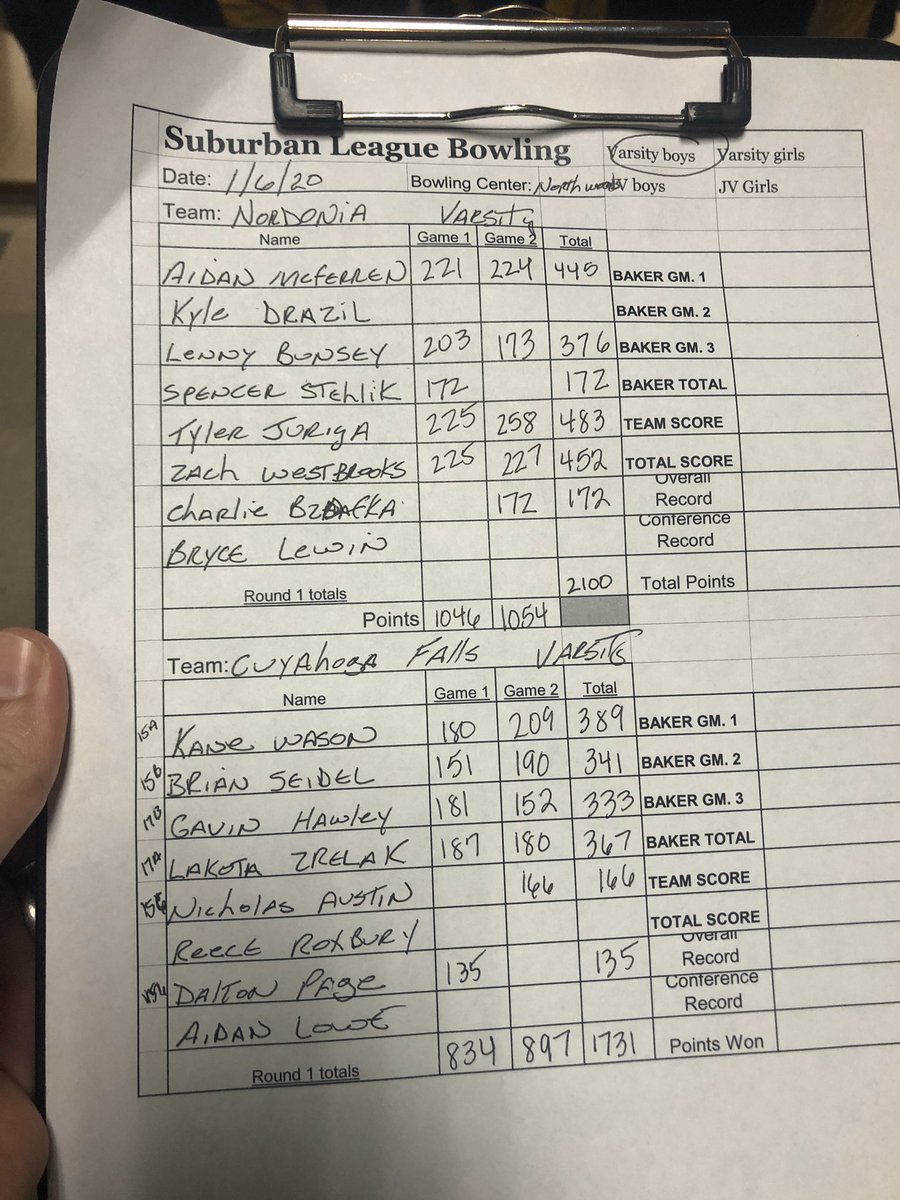 Suburban League Bowling Varsity boys Varsity girls
Date: 1/6/20 Bowling Center: Northwoods JV boys JV Girls
Team: NORDONIA VARSITY
Name Game 1 Game 2 Total
AIDAN McFERREN 221 224 445 BAKER GM. 1
Kyle DRAZIL BAKER GM. 2
LENNY BUNSEY 203 173 376 BAKER GM. 3
SPENCER STEhLIK 172 172 BAKER TOTAL
TYLER JURIGA 225 258 483 TEAM SCORE
ZACH WESTBROOKS 225 227 452 TOTAL SCORE
Charlie 172 172 Overall Record
BRYCE LEWIN Conference Record
Round 1 totals 2100 Total Points
Points 1046 1054
Team: CUYAHOGA FALLS VARSITY
Name Game 1 Game 2 Total
15A KANE WASON 180 209 389 BAKER GM. 1
15B BRIAN SEIDEL 151 190 341 BAKER GM. 2
17B GAVIN HAWLEY 181 152 333 BAKER GM. 3
17A LAKOTA ZRELAK 187 180 367 BAKER TOTAL
Nicholas AUSTIN 166 166 TEAM SCORE
REECE ROXBURY TOTAL SCORE
DALTON PAGE 135 135 Overall Record
AIDAN LOWE Conference Record
Round 1 totals 834 897 1731 Points Won